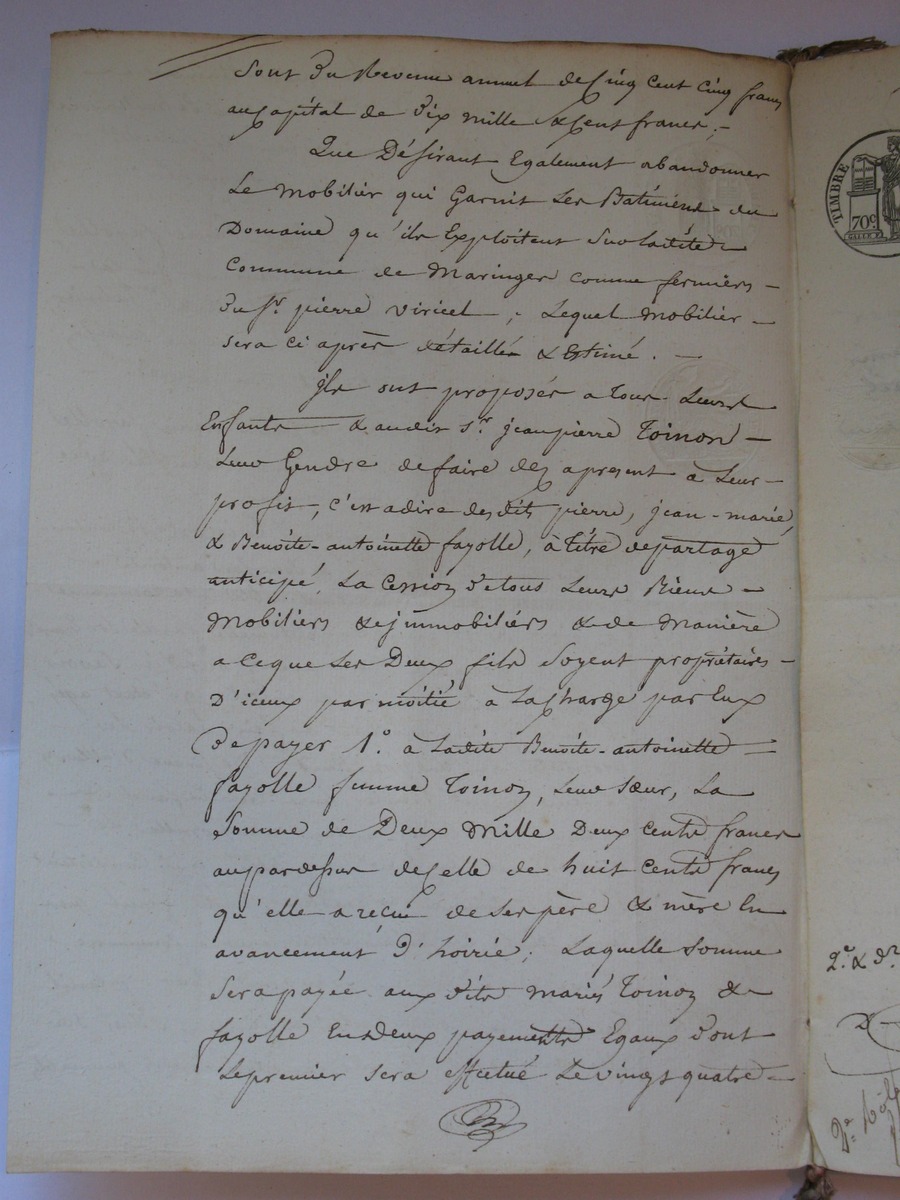 sont du Revenu annuel de Cinq Cent Cinq francs
au Capital de Dix mille & Cent francs ; -
Que Désirant Egalement abandonner
Le mobilier qui Garnit Les Batiments du
Domaine qu'ils Exploitent Sur Ladite
Commune de Maringes comme fermiers -
Du Sr. pierre Viricel ; Lequel mobilier -
sera ci après détaillé & Estimé. -
jls ont proposés a tous Leurs
Enfants & audit Sr. jean pierre Toinon -
Leur Gendre de faire des apresent à Leur -
profit, c'est adire desdits pierre, jean-marie,
& Benoite-antoinette fayolle, à titre de partage
anticipé, La Cession De tous Leurs Biens -
Mobiliers & jmmobiliers & de Manière
a ce que Les Deux fils Soyent propriétaires -
D'iceux par moitié à La Charge par Eux
De payer 1.° à Ladite Benoite-antoinette =
fayolle femme Toinon, Leur Sœur, La
Somme de Deux Mille Deux Cents francs
au pardessus de Celle de huit Cents francs
qu'elle a reçu de Ses père & mère En
avancement D'hoirie ; Laquelle Somme
Sera payée aux dits mariés Toinon &
fayolle En deux payements Egaux Dont
Le premier sera effectué Le vingt quatre -
TIMBRE
70c
2.e & dr.